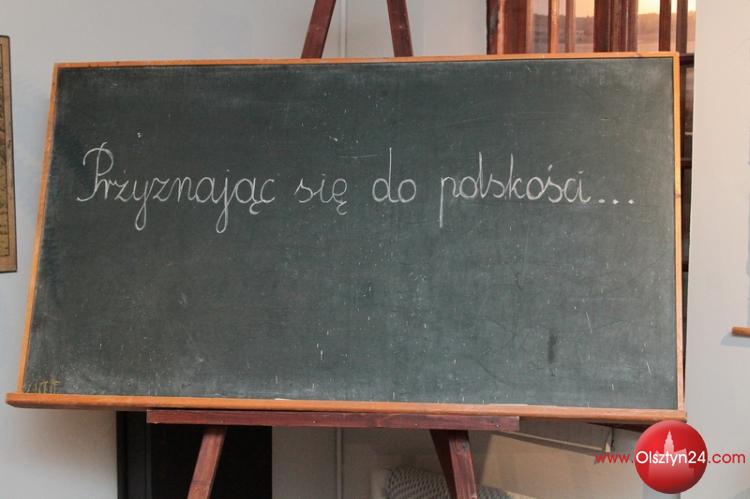 Przyznając się do polskości...
www.Olsztyn24.com